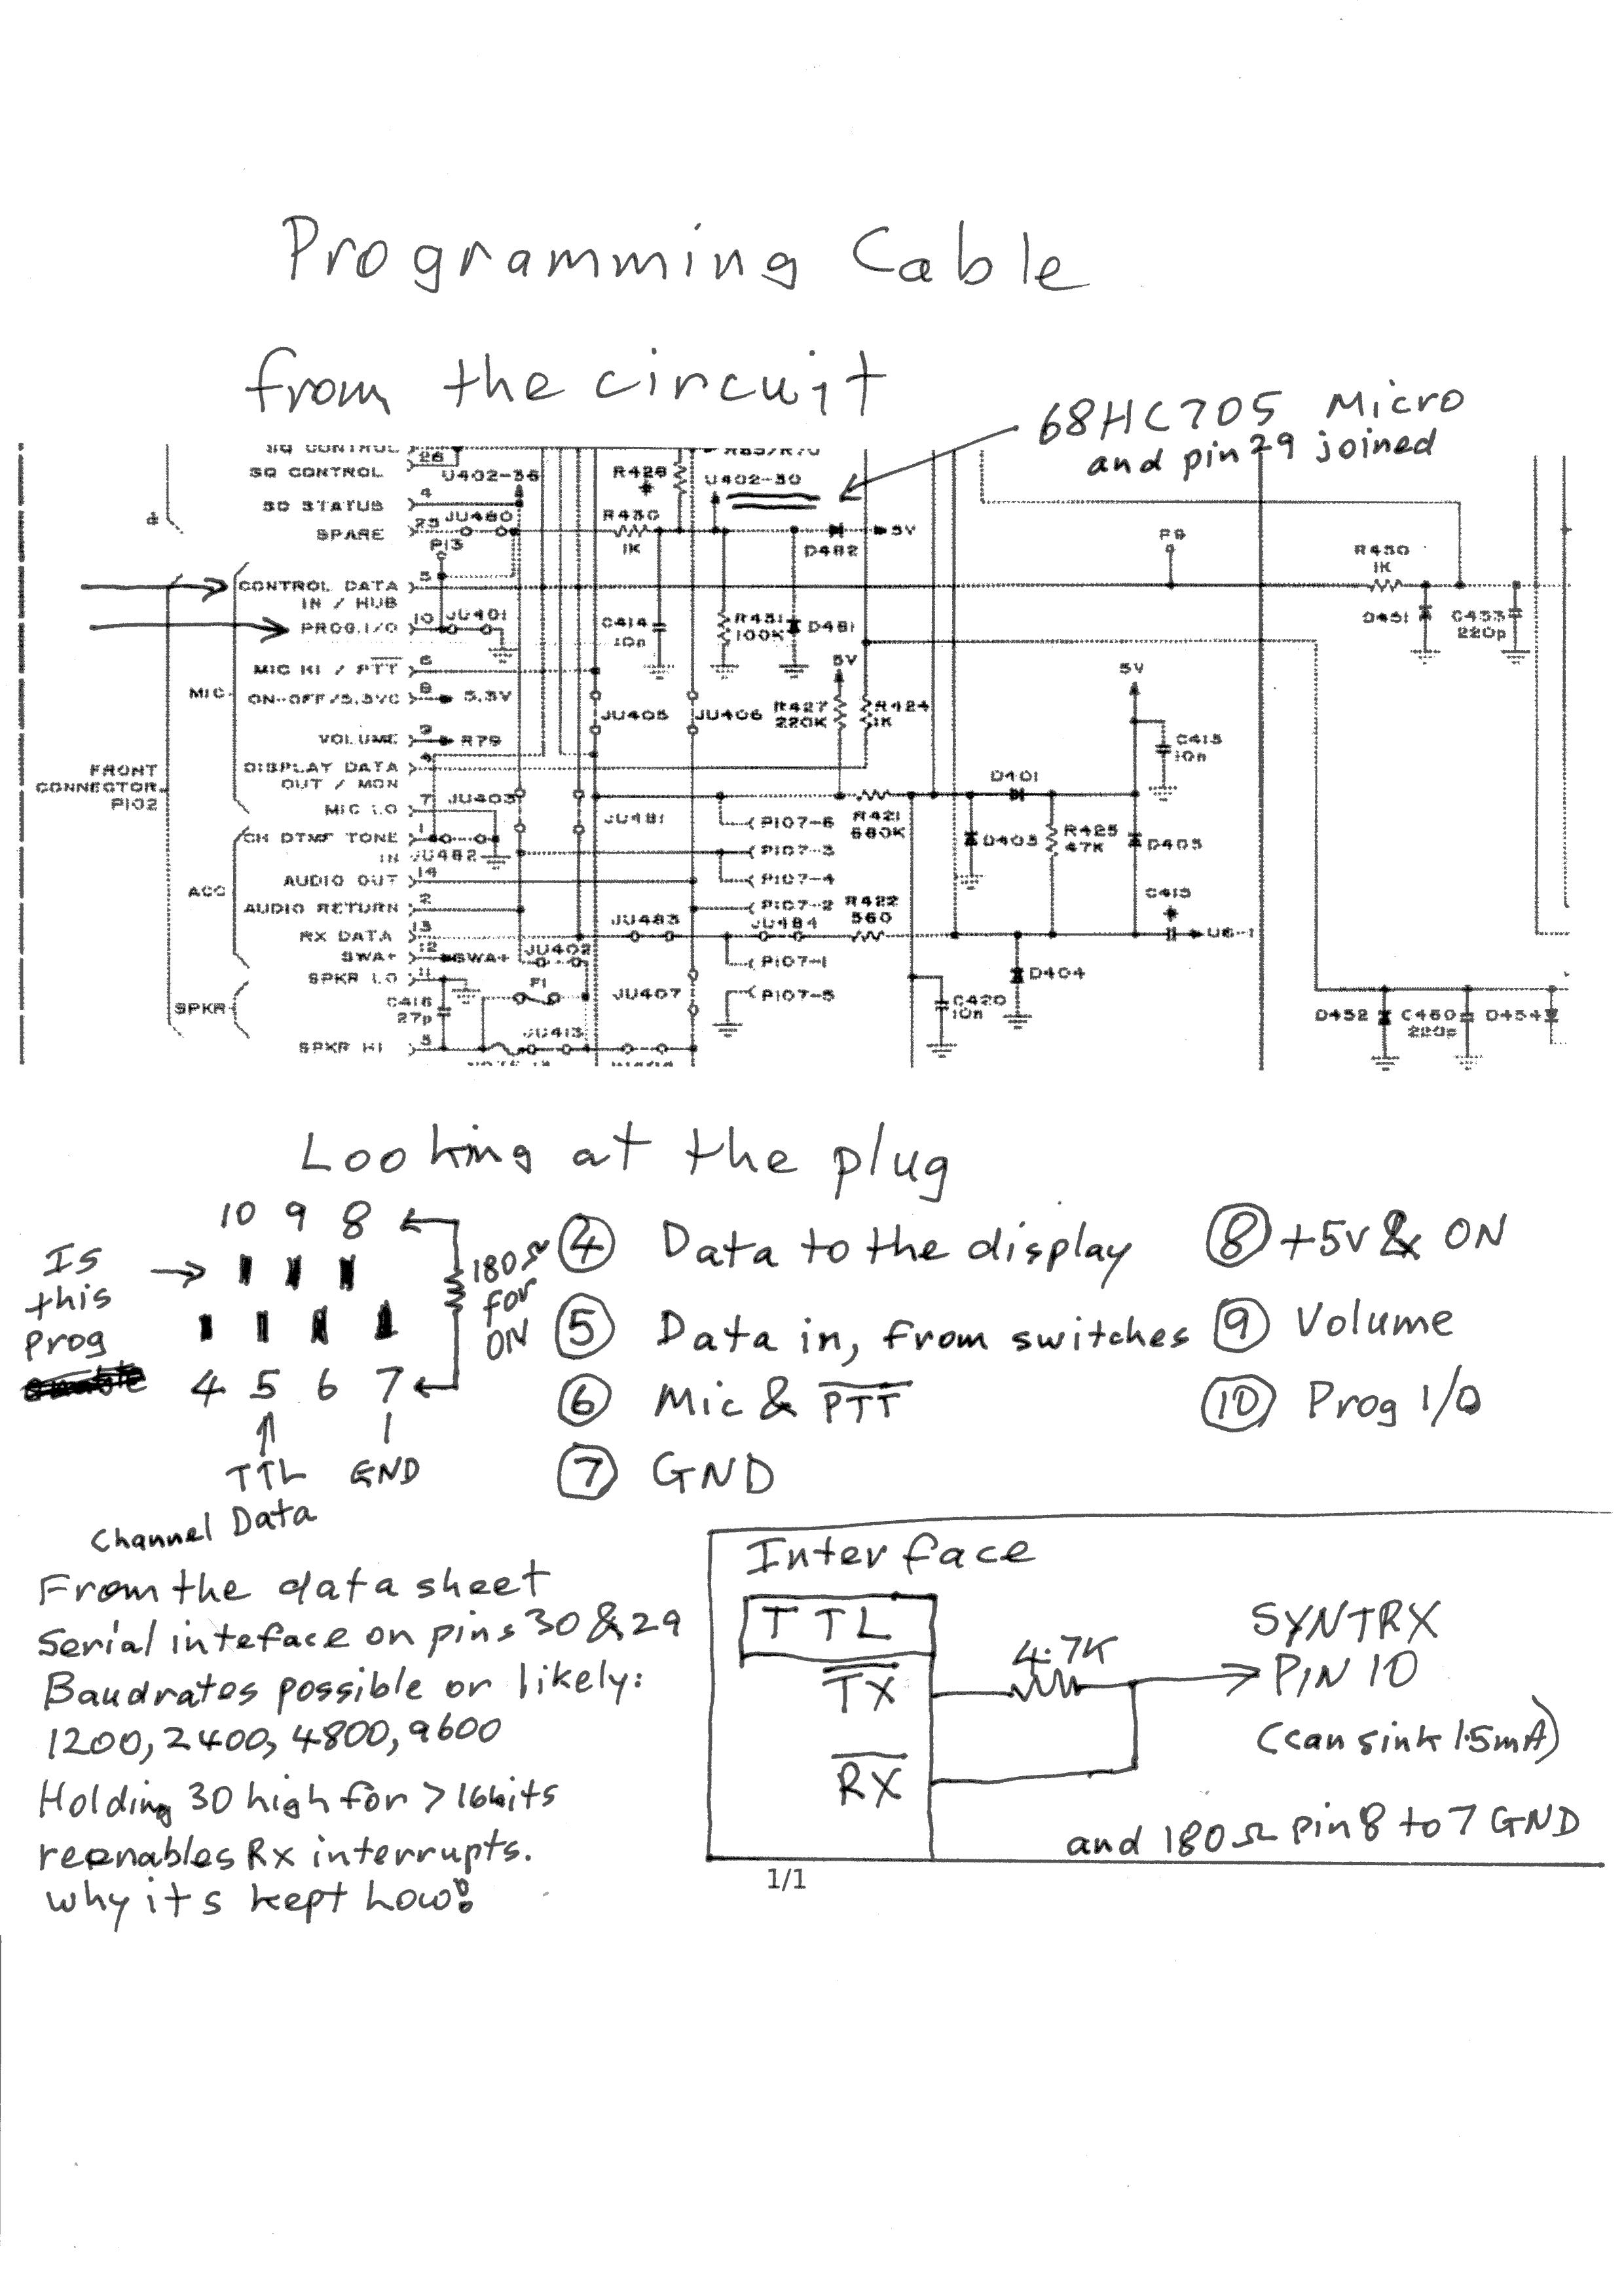 Programming Cable
from the circuit
68HC705 Micro
and pin 29 joined
SQ CONTROL
26
SQ CONTROL
U402-36
R426
U402-30
4
SQ STATUS
25
JU480
SPARE
P13
R430
1K
D482
5V
P9
R450
1K
5
CONTROL DATA
IN / HUB
10
JU401
PROG.I/O
C414
10n
R431
100K
D481
D451
C453
220p
6
MIC HI / PTT
5V
5V
MIC
8
ON-OFF/5.3VC
5.3V
JU405
JU406
R427
220K
R424
1K
9
VOLUME
R79
C413
10n
FRONT
CONNECTOR
P102
DISPLAY DATA
OUT / MON
D401
7
MIC LO
JU403
JU481
P107-6
R421
680K
1
CH DTMF TONE
IN
JU482
P107-3
D403
R425
47K
D405
ACC
14
AUDIO OUT
P107-4
2
AUDIO RETURN
P107-2
R422
560
C415
13
RX DATA
JU483
JU484
U6-1
12
SWA+
SWA+
JU402
P107-1
11
SPKR LO
F1
JU407
P107-5
D404
SPKR
C416
27p
C420
10n
D452
C460
220p
D454
JU413
SPKR HI
Looking at the plug
10 9 8
Is
this
prog
4 5 6 7
180Ω
for
ON
TTL GND
Channel Data
④ Data to the display
⑤ Data in, from switches
⑥ Mic & PTT
⑦ GND
⑧ +5v & ON
⑨ Volume
⑩ Prog I/O
From the data sheet
Serial inteface on pins 30 & 29
Baudrates possible or likely:
1200, 2400, 4800, 9600
Holding 30 high for > 16bits
reenables Rx interrupts.
why its kept Low!
Interface
TTL
TX
RX
4.7K
SYNTRX
PIN 10
(can sink 1.5mA)
and 180Ω pin 8 to 7 GND
1/1